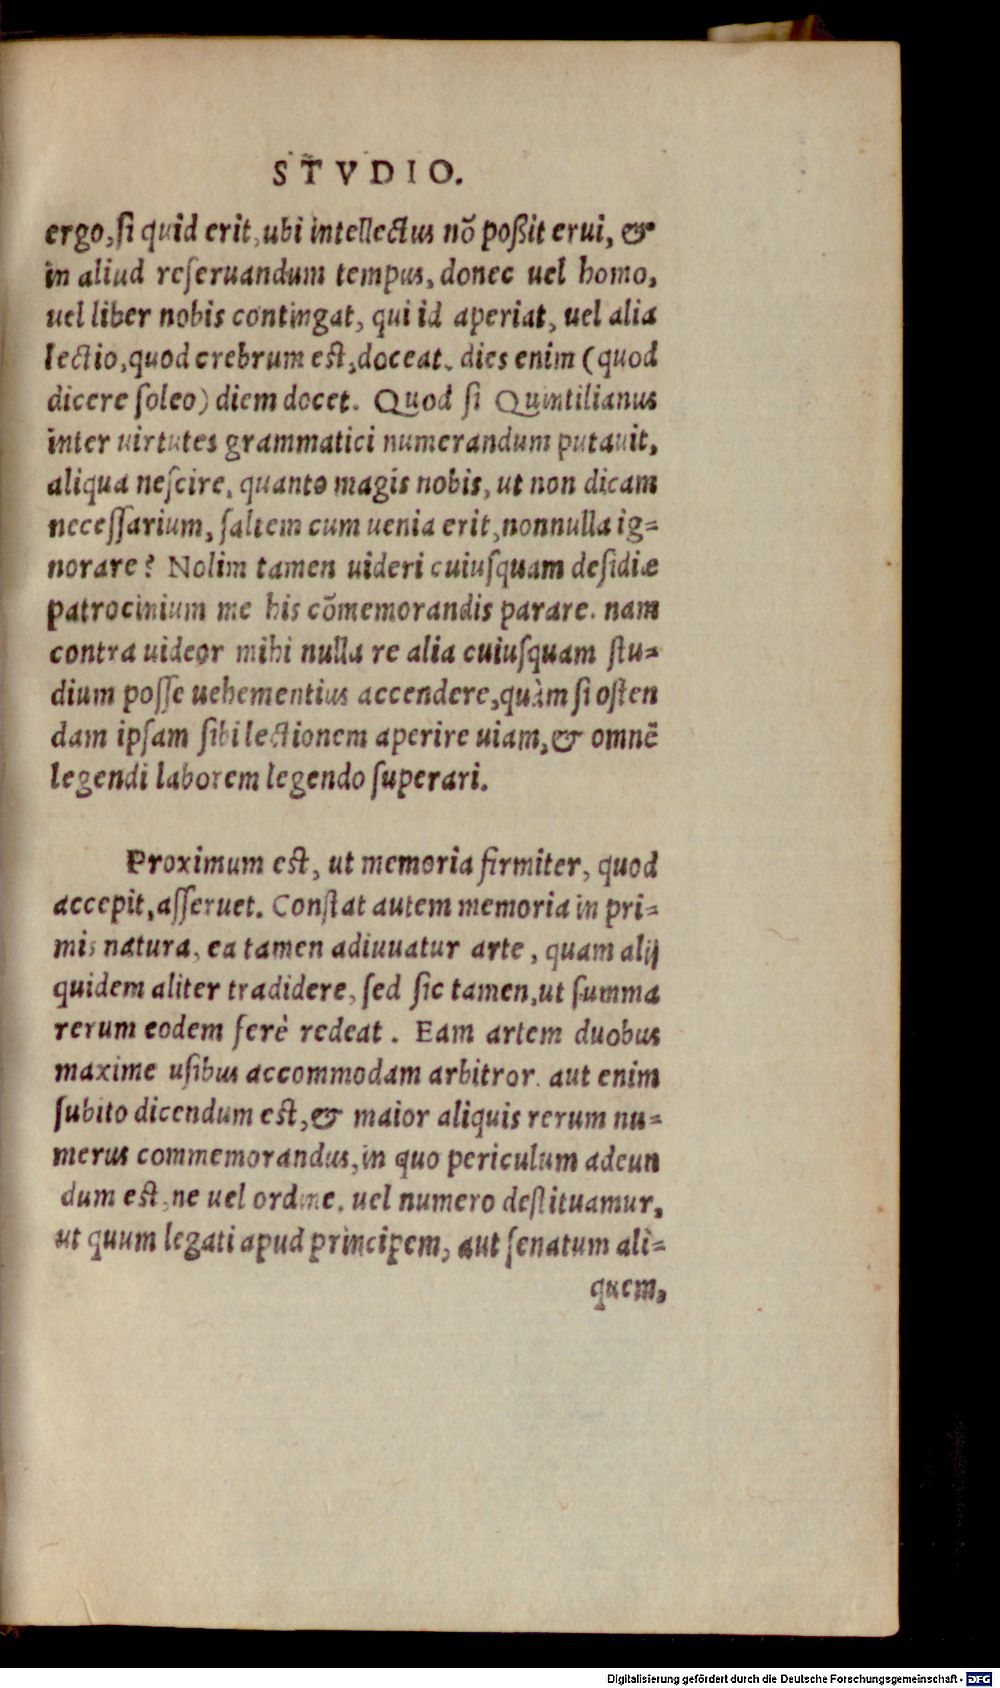 STVDIO.
ergo, ſi quid erit, ubi intellectus nõ poßit erui, &
in aliud reſeruandum tempus, donec uel homo,
uel liber nobis contingat, qui id aperiat, uel alia
lectio, quod crebrum eſt, doceat. dies enim (quod
dicere ſoleo) diem docet. Quod ſi Quintilianus
inter uirtutes grammatici numerandum putauit,
aliqua neſcire, quanto magis nobis, ut non dicam
neceſſarium, ſaltem cum uenia erit, nonnulla ig=
norare? Nolim tamen uideri cuiuſquam deſidiæ
patrocinium me his cõmemorandis parare. nam
contra uideor mihi nulla re alia cuiuſquam ſtu=
dium poſſe uehementius accendere, quàm ſi oſten
dam ipſam ſibi lectionem aperire uiam, & omnẽ
legendi laborem legendo ſuperari.
Proximum eſt, ut memoria firmiter, quod
accepit, aſſeruet. Conſtat autem memoria in pri=
mis natura, ea tamen adiuuatur arte, quam alij
quidem aliter tradidere, ſed ſic tamen, ut ſumma
rerum eodem ferè redeat. Eam artem duobus
maxime uſibus accommodam arbitror. aut enim
ſubito dicendum eſt, & maior aliquis rerum nu=
merus commemorandus, in quo periculum adeun
dum eſt, ne uel ordine, uel numero deſtituamur,
ut quum legati apud principem, aut ſenatum ali=
quem,
Digitalisierung gefördert durch die Deutsche Forschungsgemeinschaft - DFG